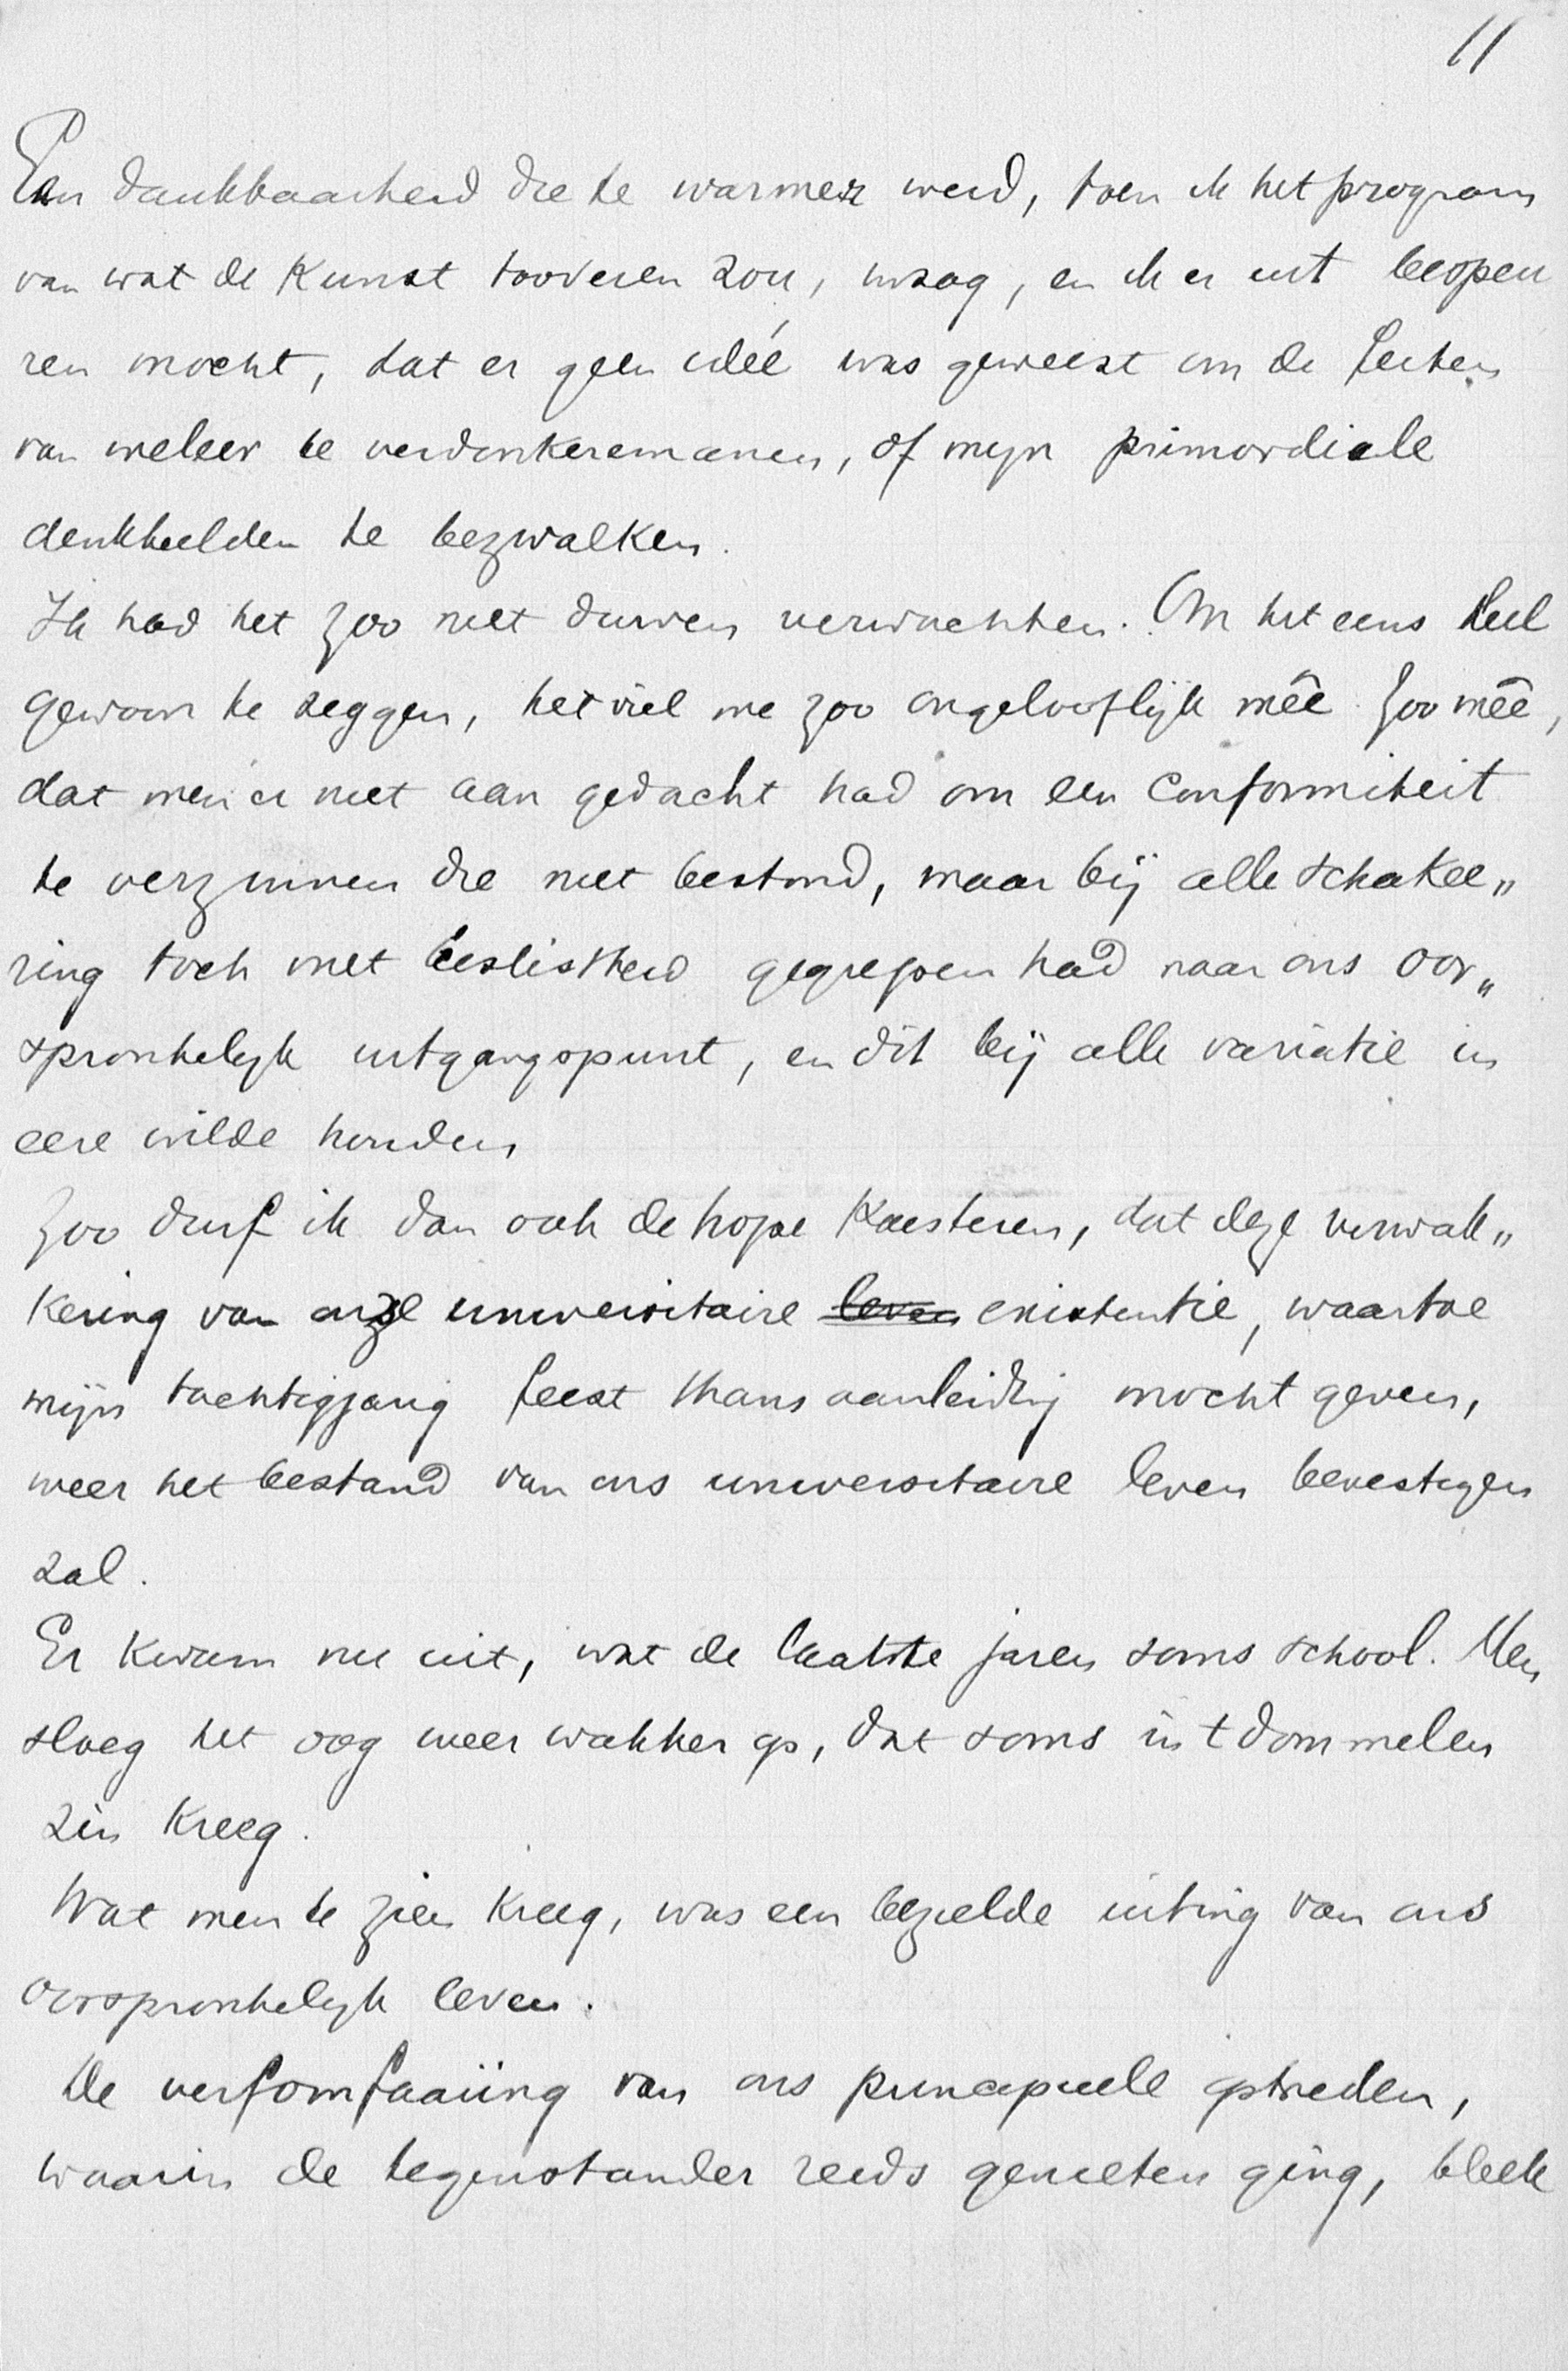 11
Een dankbaarheid die te warmer werd, toen ik het program
van wat de Kunst tooveren zou, inzag, en ik er uit bespeu
ren mocht, dat er geen idéé was geweest om de feiten
van weleer te verdonkeremanen, of mijn primordiale
denkbeelden te bezwalken.
Ik had het zoo niet durven verwachten. Om het eens heel
gewoon te zeggen, het viel me zoo ongelooflijk meê. Zoo meê,
dat men er niet aan gedacht had om een Conformiteit
te verzinnen die niet bestond, maar bij alle schakee„
ring toch met beslistheid gegrepen had naar ons oor„
spronkelijk uitgangspunt, en dit bij alle variatie in
eere wilde houden
Zoo durf ik dan ook de hope Koesteren, dat deze verwak„
Kering van onze universitaire leven existentie, waartoe
mijn tachtigjarig feest thans aanleiding mocht geven,
weer het bestand van ons universitaire leven bevestigen
zal.
Er Kwam nu uit, wat de laatste jaren soms school. Men
sloeg het oog weer wakker op, dat soms in t dommelen
zin Kreeg.
Wat men te zien Kreeg, was een bezielde uiting van ons
oorspronkelijk leven.
De verfomfaaiing van ons principieele optreden,
waarin de tegenstander reeds genieten ging, bleek